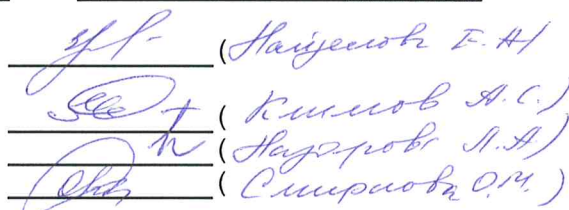 ( Нащекова Е.Н/
( Климов А.С.)
( Назарова Л.А)
( Смирнова О.М.)